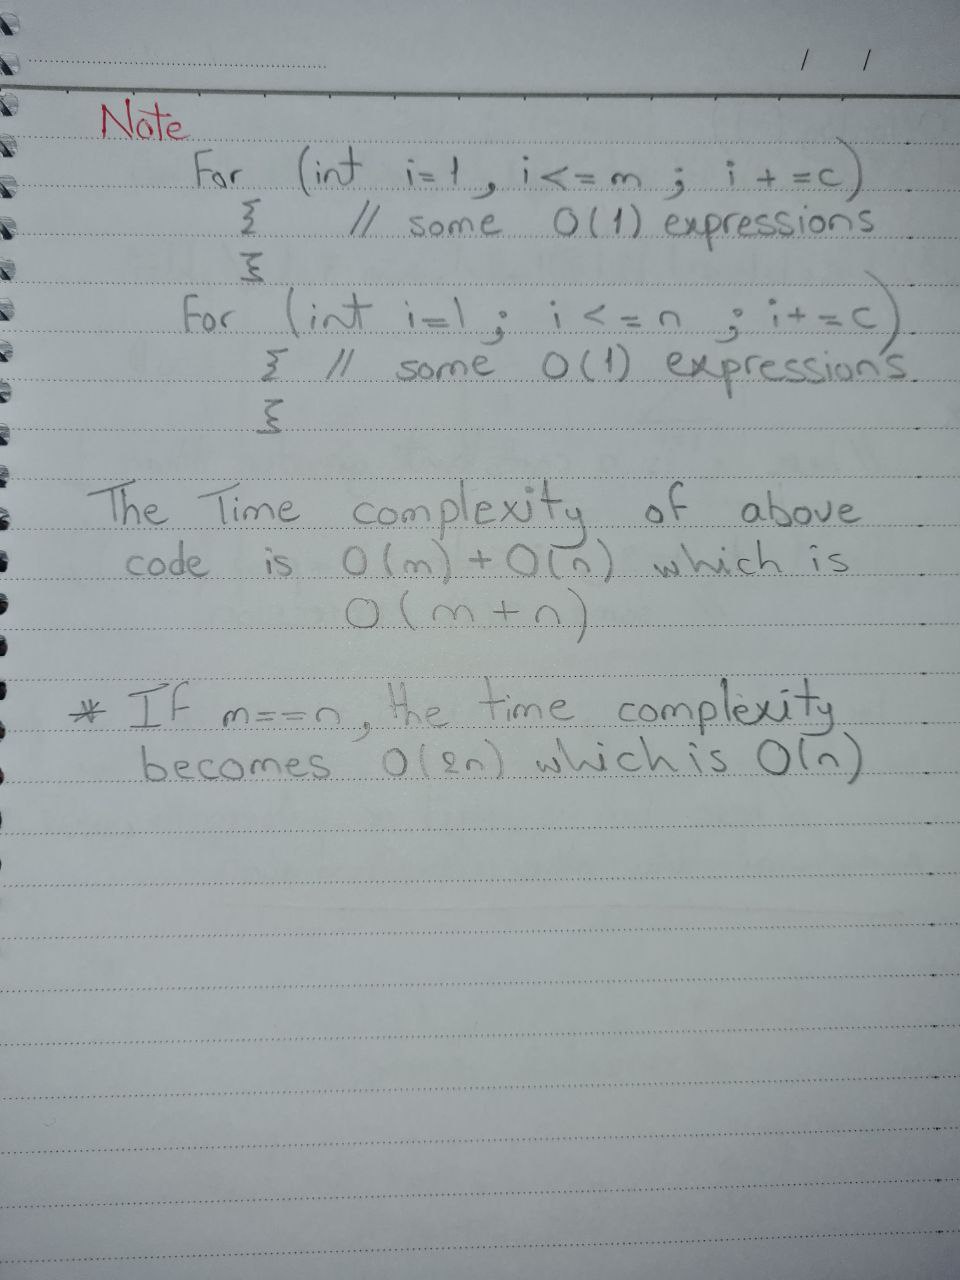 Note
For (int i=1, i<=m ; i +=c)
{ // some O(1) expressions
}
For (int i=1; i<=n ; i+=c)
{ // some O(1) expressions
}
The Time complexity of above
code is O(m)+O(n) which is
O(m+n)
* If m==n, the time complexity
becomes O(2n) which is O(n)